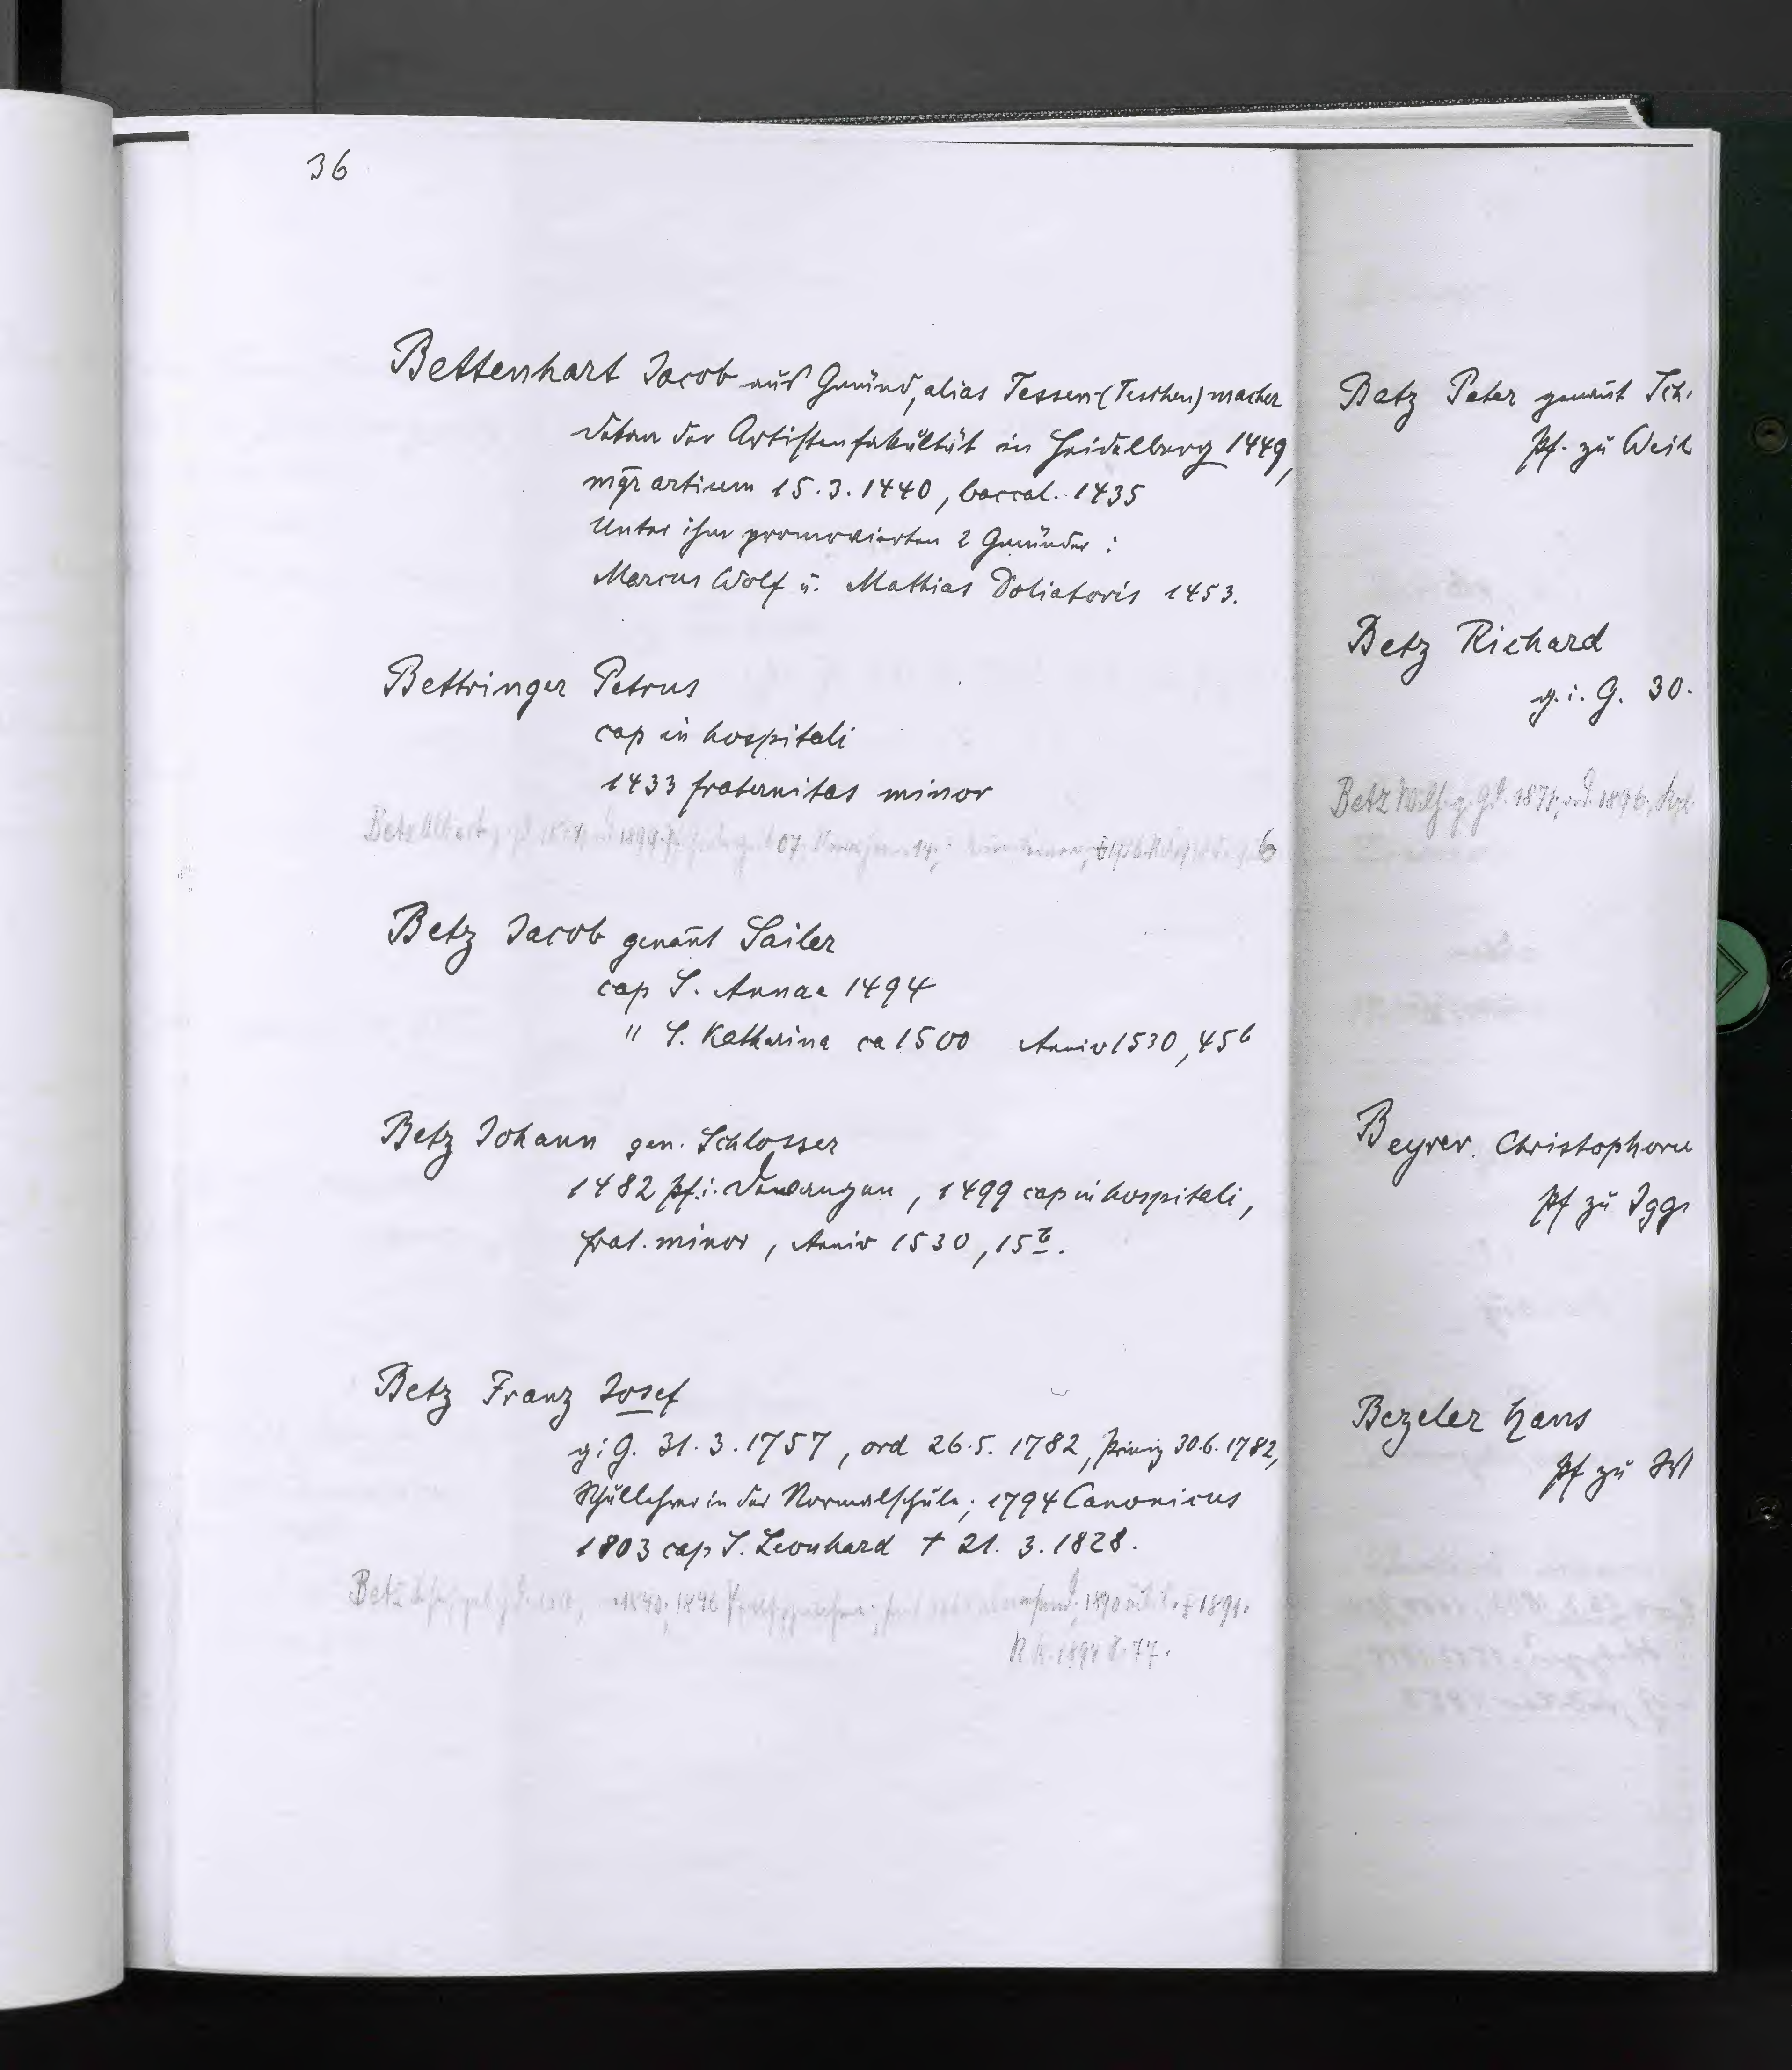 36
Bettenhart Jacob aus Gmünd, alias Tessen-(Teschen)macher
Dekan der Artistenfakultät in Heidelberg 1449,
mgr artium 15.3.1440, baccal. 1435
Unter ihm promovierten 2 Gmünder:
Marcus Wolf u. Mathias Doliatoris 1453.
Bettringer Petrus
cap in hospitali
1433 fraternitas minor
Betz Albert,
Betz Jacob genant Sailer
cap S. Annae 1494
" S. Katharina ca 1500 Anniv 1530, 45b
Betz Johann gen. Schlosser
1482 pf. i. Dewangen, 1499 cap in hospitali,
frat. minor, Anniv 1530, 15b.
Betz Franz Josef
g i G. 31.3.1757, ord 26.5.1782, Primiz 30.6.1782,
Schullehrer in der Normalschule; 1794 Canonicus
1803 cap S. Leonhard † 21.3.1828.
Betz 1846 1890 † 1891.
Betz Peter genant Sch
Pf. zu Weil
Betz Richard
g. i. G. 30.
Betz g. 1871, ord. 1896,
Beyrer Christophoru
Pf zu Igg
Bezeler Hans
Pf zu